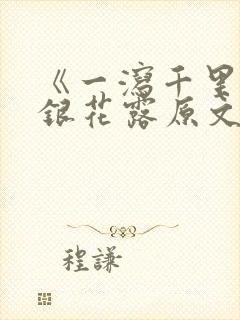 《一泻千里
银花露原文
程谦